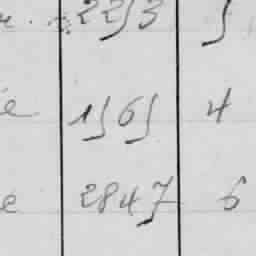 2253 5
e 1565 4
e 2847 6